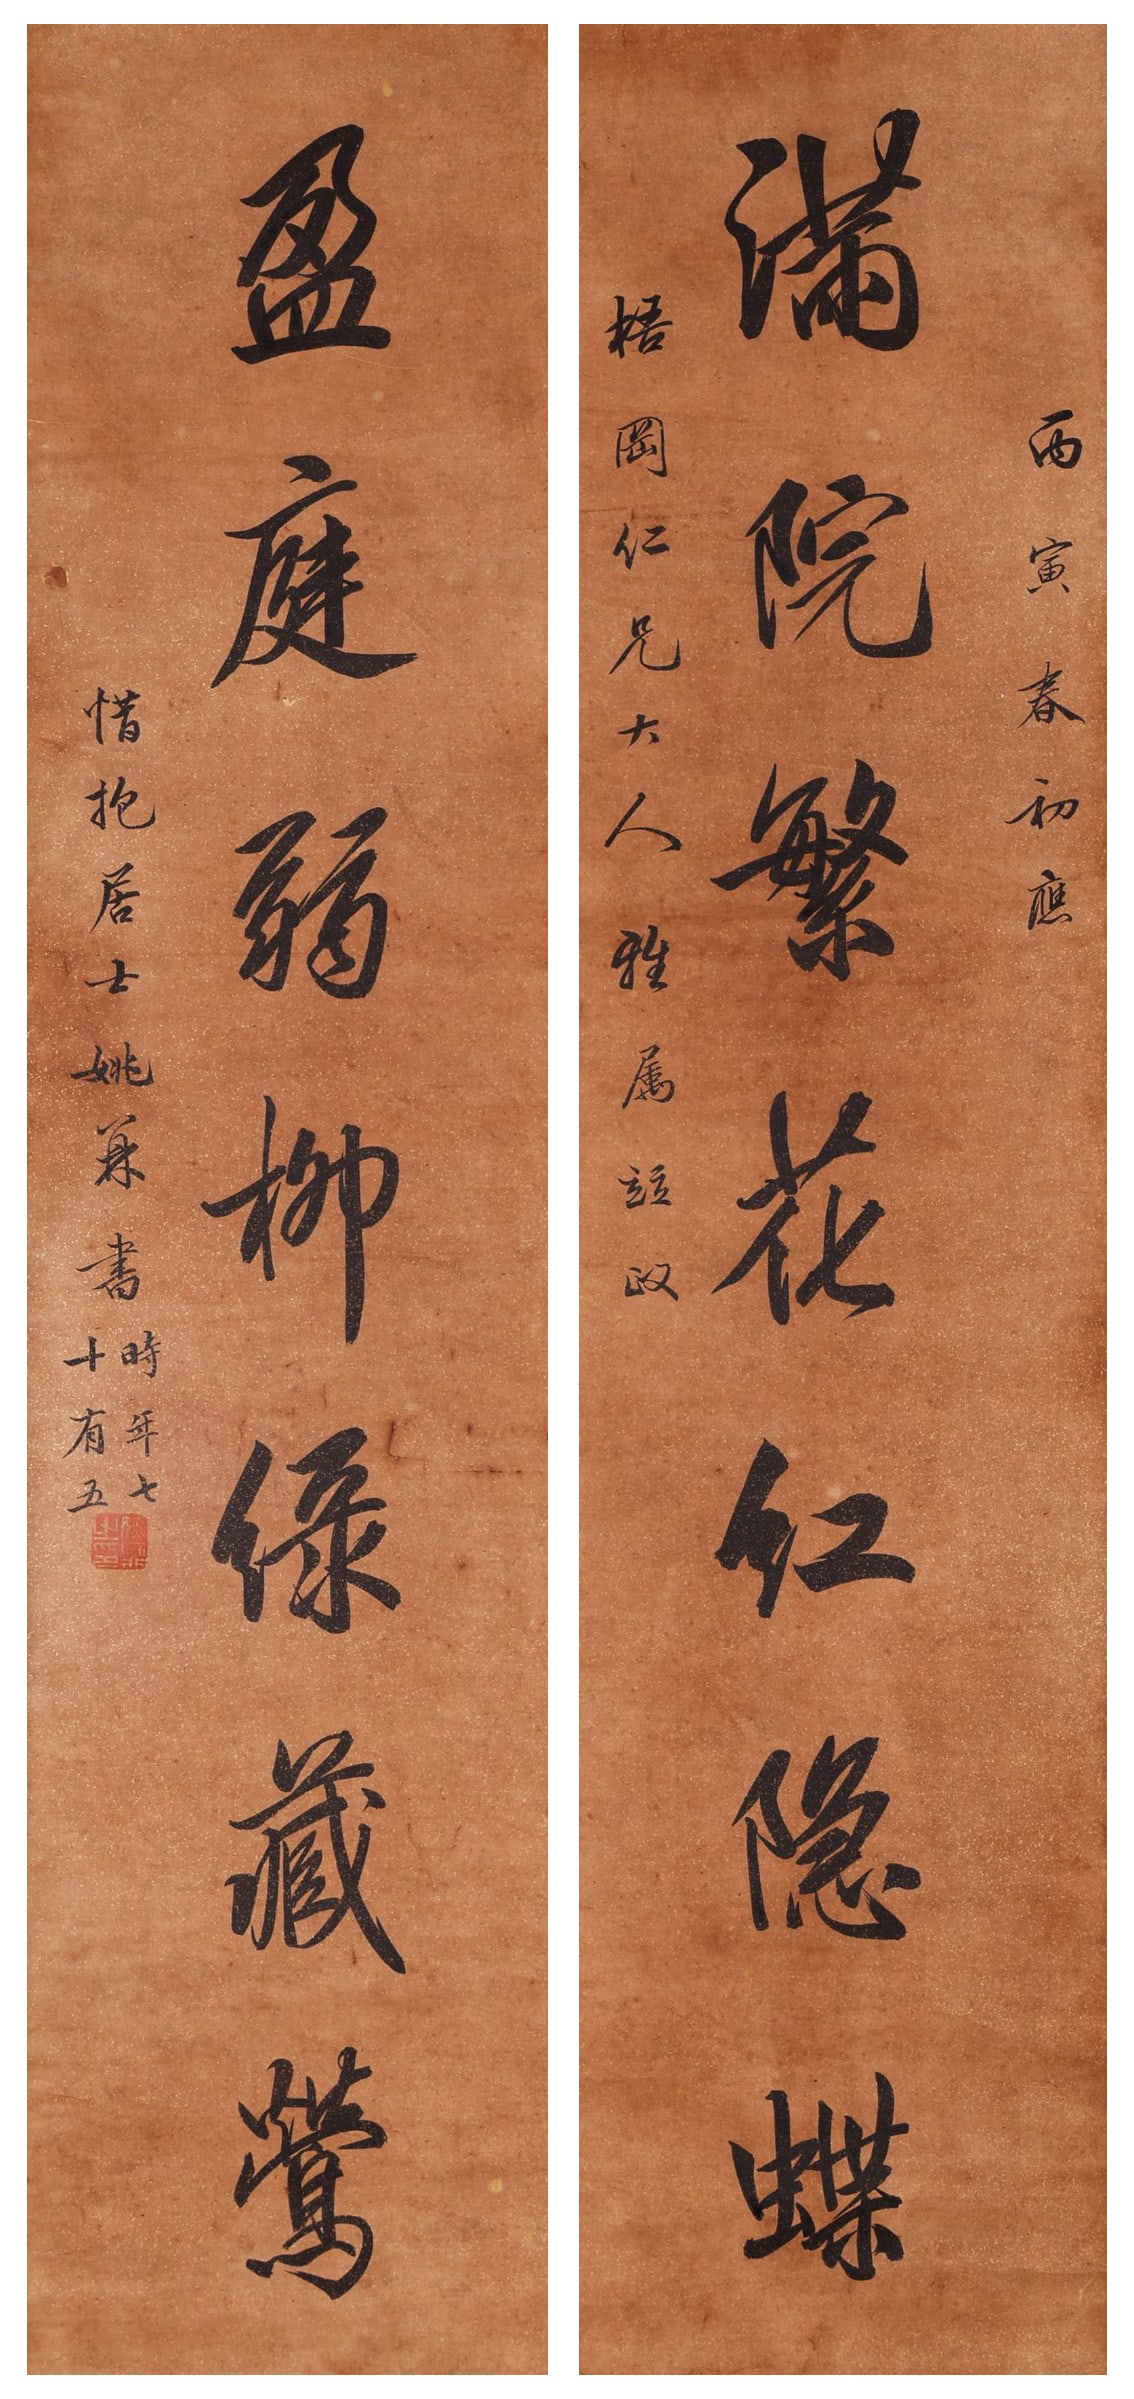 丙寅春初應
滿院繁花紅隐蝶
梧岡仁兄大人雅屬竝政
盈庭弱柳緑藏鶯
惜抱居士姚鼐書
時年七
十有五